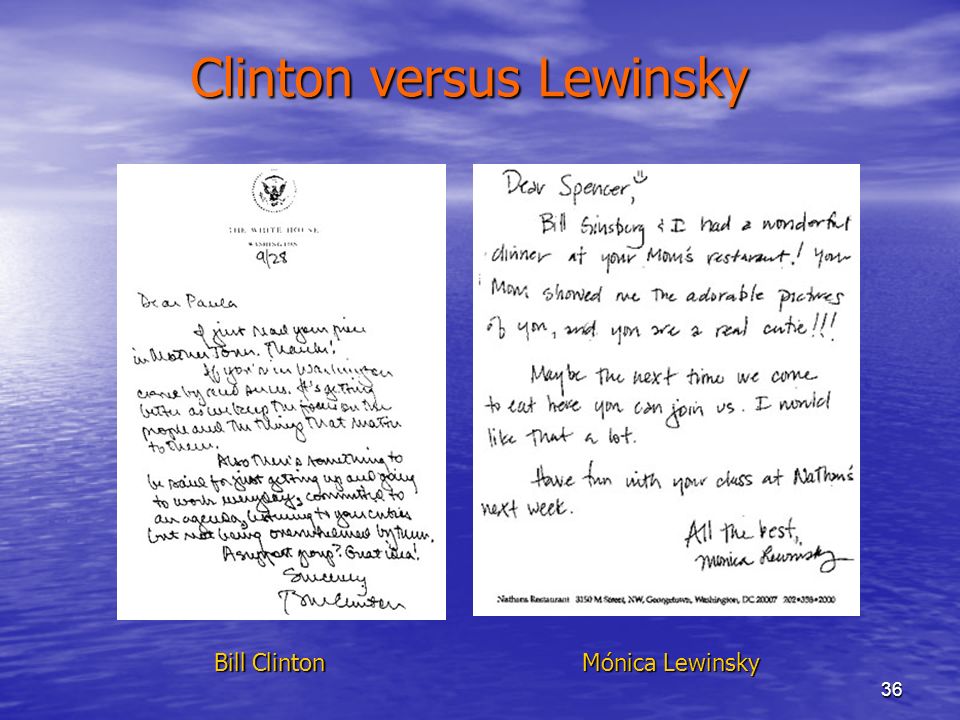 Clinton versus Lewinsky
THE WHITE HOUSE
WASHINGTON
9/28
Dear Paula
I just read your piece
in Mother Jones. Thanks!
If you're in Washington
come by and see us. It's getting
better as we keep the focus on the
people and the things that matter
to them.
Also there's something to
be said for just getting up and going
to work everyday, committed to
an agenda, listening to your critics
but not being overwhelmed by them.
A support group? Great idea!
Sincerely
Bill Clinton
Dear Spencer,
Bill Ginsburg & I had a wonderful
dinner at your Mom's restaurant! Your
Mom showed me the adorable pictures
of you, and you are a real cutie!!!
Maybe the next time we come
to eat here you can join us. I would
like that a lot.
Have fun with your class at Nathan's
next week.
All the best,
Monica Lewinsky
Nathans Restaurant 3150 M Street, NW, Georgetown, Washington, DC 20007 202•338•2000
Bill Clinton
Mónica Lewinsky
36